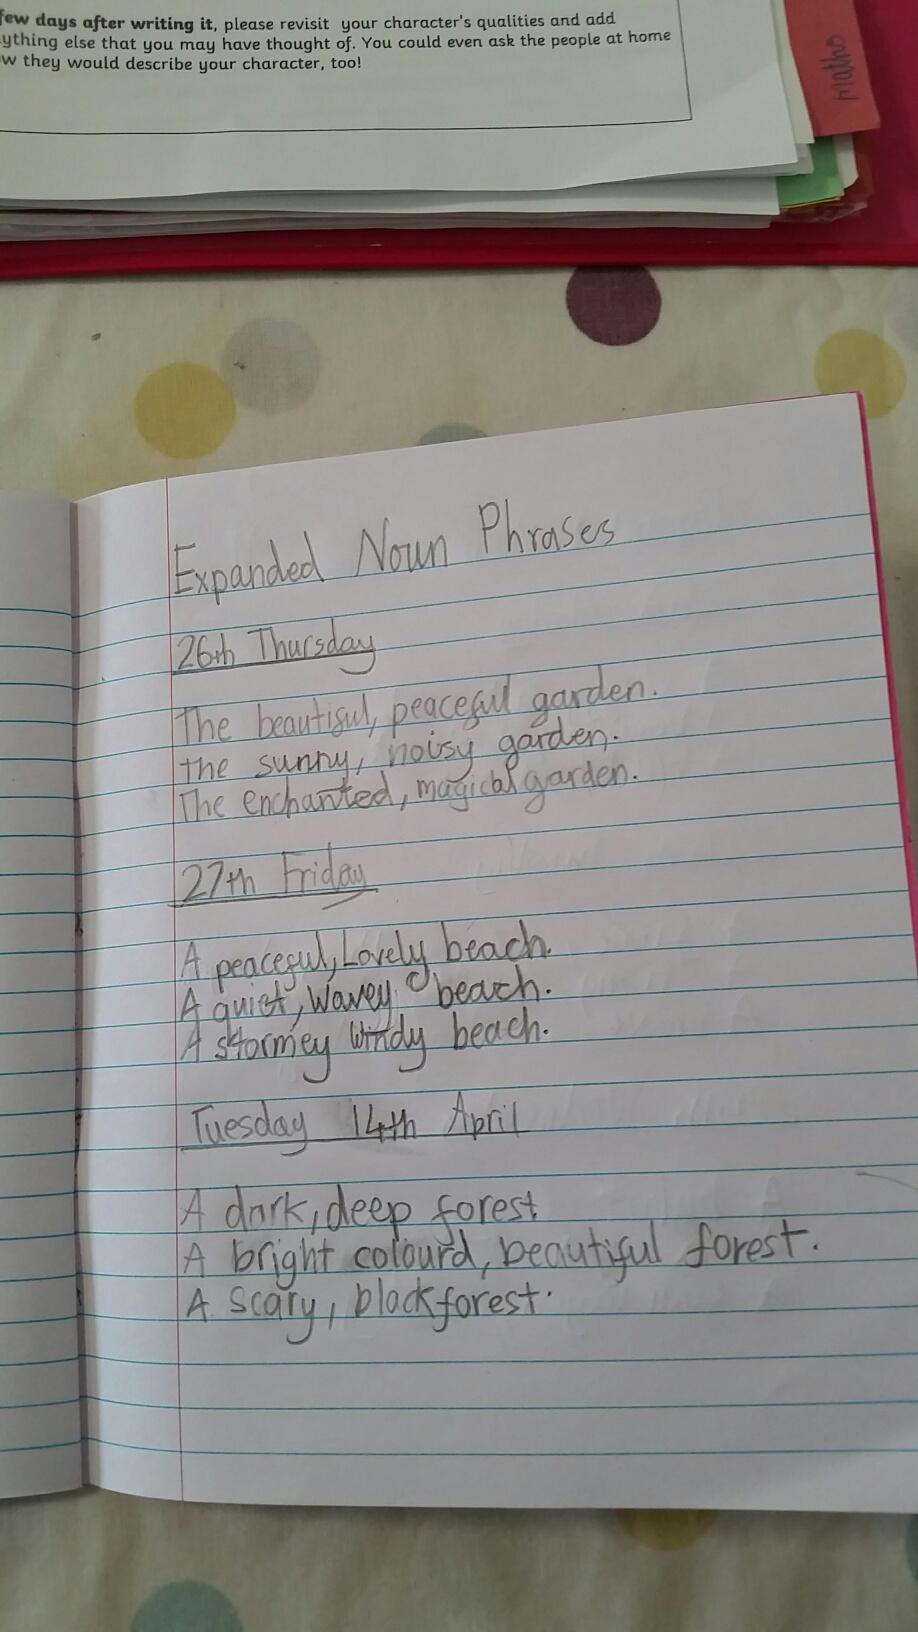 few days after writing it, please revisit your character's qualities and add
ything else that you may have thought of. You could even ask the people at home
w they would describe your character, too!
maths
Expanded Noun Phrases
26th Thursday
The beautiful, peaceful garden.
the sunny, noisy garden.
The enchanted, magical garden.
27th Friday
A peaceful, Lovely beach.
A quiet, wavey beach.
A stormey windy beach.
Tuesday 14th April
A dark, deep forest.
A bright colourd, beautiful forest.
A scary, black forest.